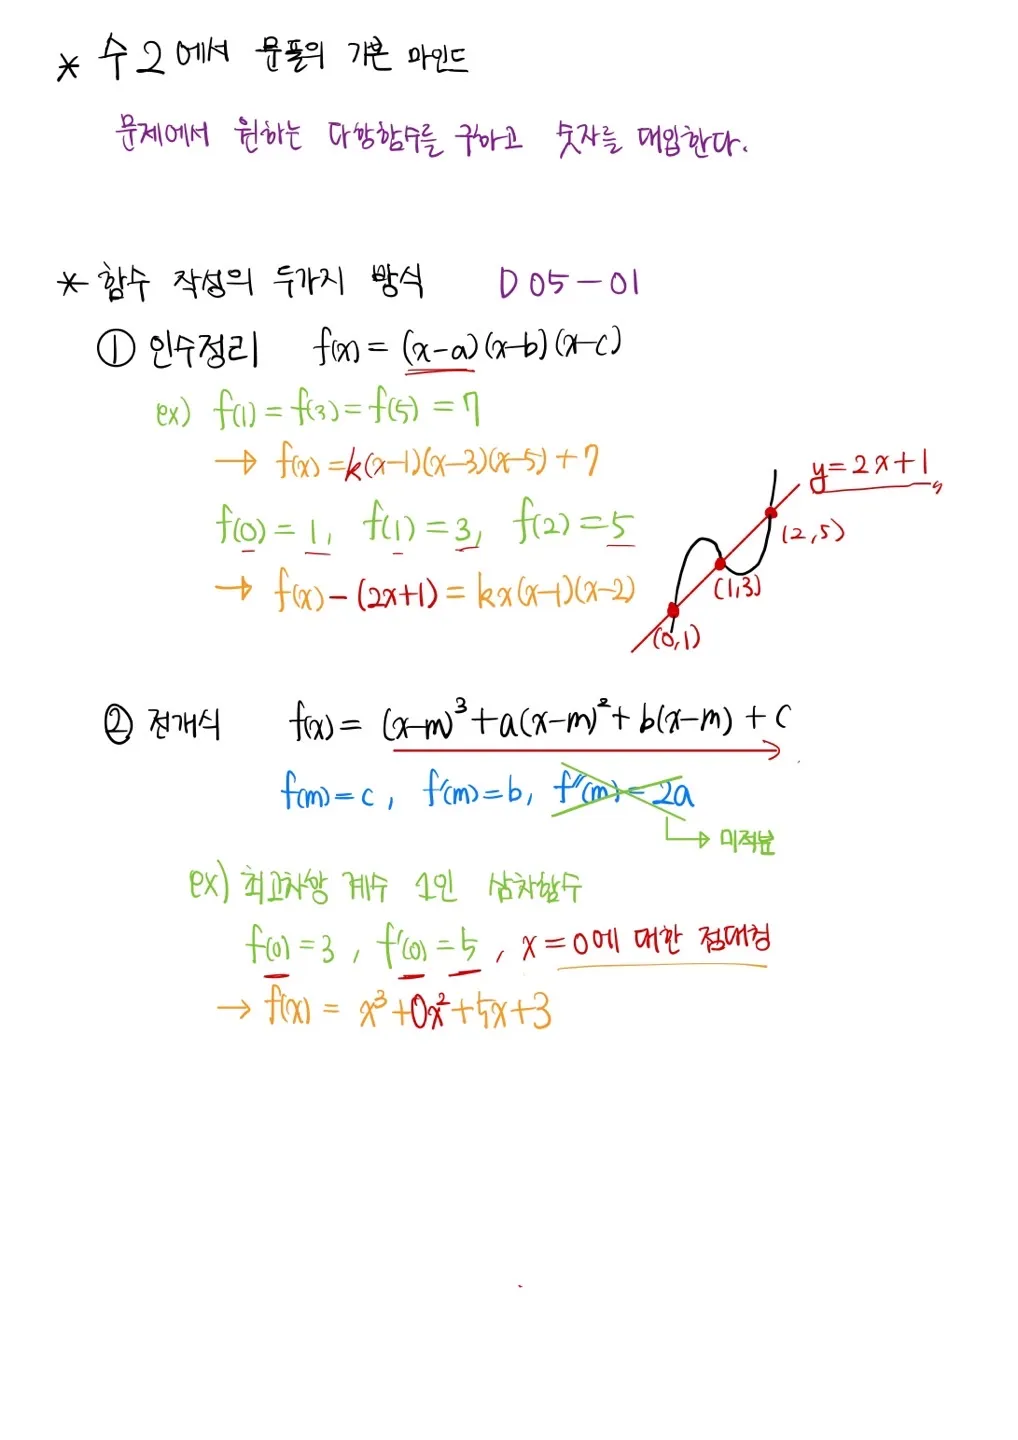 * 수2에서 문풀의 기본 마인드
문제에서 원하는 다항함수를 구하고 숫자를 대입한다.
* 함수 작성의 두가지 방식 D05-01
① 인수정리 f(x) = (x-a)(x-b)(x-c)
ex) f(1) = f(3) = f(5) = 7
→ f(x) = k(x-1)(x-3)(x-5) + 7
y = 2x+1
f(0) = 1, f(1) = 3, f(2) = 5
(2,5)
→ f(x) - (2x+1) = kx(x-1)(x-2)
(1,3)
(0,1)
② 전개식 f(x) = (x-m)³ + a(x-m)² + b(x-m) + c
f(m) = c, f'(m) = b, f''(m) = 2a
↳ 미적분
ex) 최고차항 계수 1인 삼차함수
f(0) = 3, f'(0) = 5, x = 0에 대한 점대칭
→ f(x) = x³ + 0x² + 5x + 3